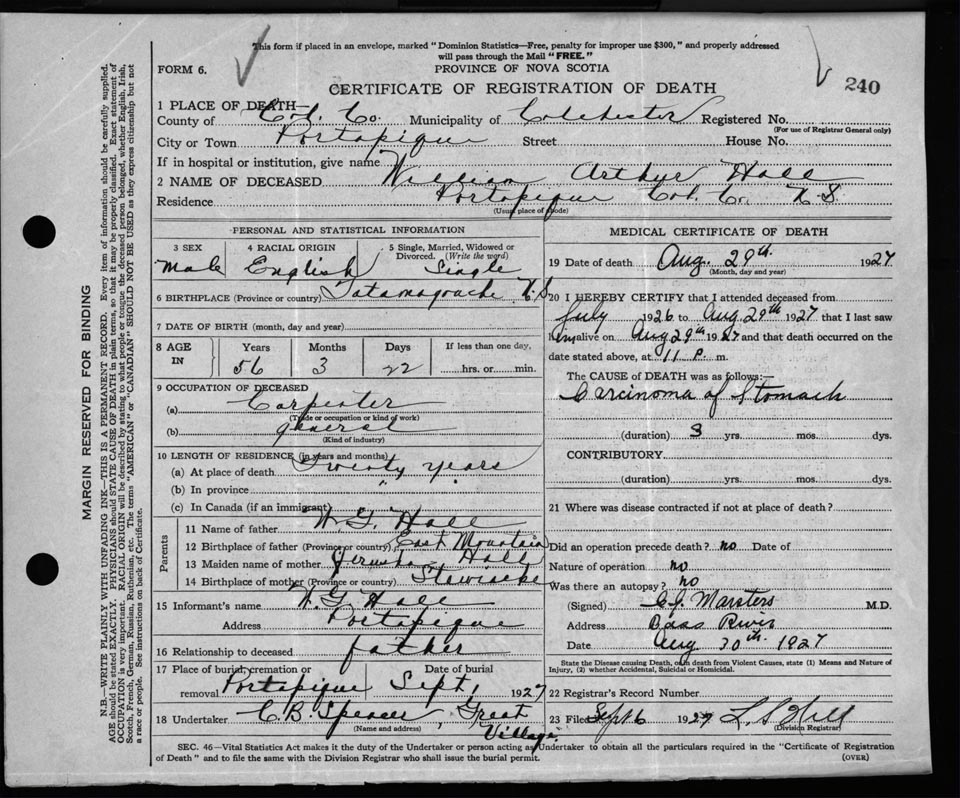 This form if placed in an envelope, marked "Dominion Statistics—Free, penalty for improper use $300," and properly addressed
will pass through the Mail "FREE."
FORM 6.
PROVINCE OF NOVA SCOTIA
240
CERTIFICATE OF REGISTRATION OF DEATH
1 PLACE OF DEATH—
County of Col. Co. Municipality of Colchester Registered No.
(For use of Registrar General only)
City or Town Portapique Street House No.
If in hospital or institution, give name
2 NAME OF DECEASED William Arthur Hall
Residence Portapique Col. Co. N.S.
(Usual place of abode)
PERSONAL AND STATISTICAL INFORMATION
3 SEX 4 RACIAL ORIGIN 5 Single, Married, Widowed or Divorced. (Write the word)
Male English Single
6 BIRTHPLACE (Province or country) Tatamagouche N.S
7 DATE OF BIRTH (month, day and year)
8 AGE IN Years Months Days If less than one day,
56 3 22 hrs. or min.
9 OCCUPATION OF DECEASED
(a) Carpenter
(Trade or occupation or kind of work)
(b) general
(Kind of industry)
10 LENGTH OF RESIDENCE (in years and months)
(a) At place of death Twenty years
(b) In province " "
(c) In Canada (if an immigrant)
Parents
11 Name of father W. G. Hall
12 Birthplace of father (Province or country) East Mountain
13 Maiden name of mother Jerusha Hall
14 Birthplace of mother (Province or country) Stewiacke
15 Informant's name W G Hall
Address Portapique
16 Relationship to deceased father
17 Place of burial, cremation or removal Date of burial
Portapique Sept, 1927
18 Undertaker C. B. Spencer, Great Village.
(Name and address)
MEDICAL CERTIFICATE OF DEATH
19 Date of death Aug. 29th 1927
(Month, day and year)
20 I HEREBY CERTIFY that I attended deceased from
July 1926 to Aug 29th 1927 that I last saw
him alive on Aug 29th 1927 and that death occurred on the
date stated above, at 11 P. m.
The CAUSE of DEATH was as follows:—
Carcinoma of Stomach
(duration) 3 yrs. mos. dys.
CONTRIBUTORY
(duration) yrs. mos. dys.
21 Where was disease contracted if not at place of death?
Did an operation precede death? no Date of
Nature of operation no
Was there an autopsy? no
(Signed) Marsters M.D.
Address Bass River
Date Aug 30th 1927
State the Disease causing Death, or in death from Violent Causes, state (1) Means and Nature of
Injury, (2) whether Accidental, Suicidal or Homicidal.
22 Registrar's Record Number
23 Filed Sept 6 1927 L. S. Hill
(Division Registrar)
SEC. 46—Vital Statistics Act makes it the duty of the Undertaker or person acting as Undertaker to obtain all the particulars required in the "Certificate of Registration
of Death" and to file the same with the Division Registrar who shall issue the burial permit.
(OVER)
MARGIN RESERVED FOR BINDING
N.B.—WRITE PLAINLY WITH UNFADING INK—THIS IS A PERMANENT RECORD. Every item of information should be carefully supplied.
AGE should be stated EXACTLY. PHYSICIANS should STATE CAUSE OF DEATH in plain terms, so that it may be properly classified. Exact statement of
OCCUPATION is very important. RACIAL ORIGIN will be described by stating to what people or tongue the deceased person belonged, whether English, Irish,
Scotch, French, German, Russian, Ruthenian, etc. The terms "AMERICAN" or "CANADIAN" SHOULD NOT BE USED as they express citizenship but not
a race or people. See instructions on back of Certificate.